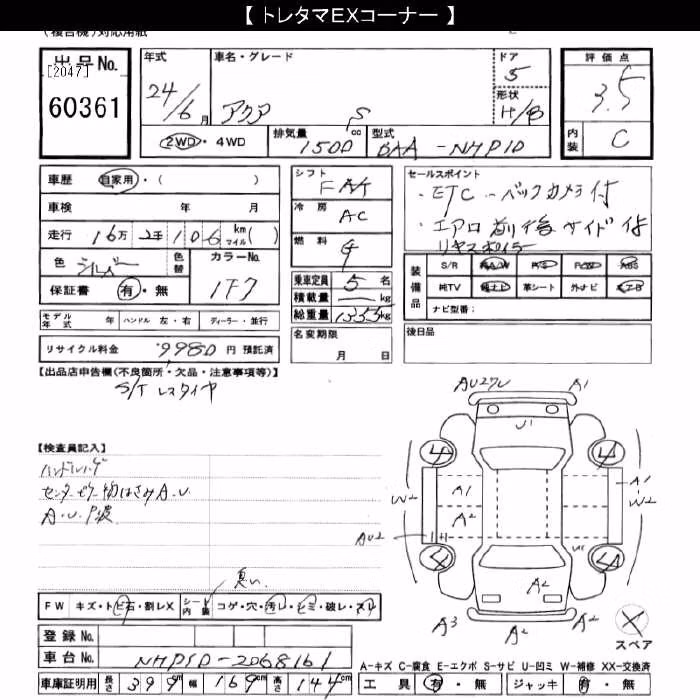 【 トレタマEXコーナー 】
(複合機)対応用紙
出品No.
[2047]
60361
年式
24/6月
車名・グレード
アクア S
ドア
5
形状
H/B
評価点
3.5
内装
C
2WD・4WD
排気量
1500 cc
型式
DAA-NHP10
車歴
自家用・( )
車検 年 月
走行 16万2千106 km マイル( )
色 シルバー 色替
カラーNo. 1F7
保証書 有・無
シフト
FAT
冷房
AC
燃料
乗車定員 5 名
積載量 — kg
総重量 1355 kg
セールスポイント
・ETC・バックカメラ付
・エアロ前後サイド付
リヤスポイラー
装備品
S/R A/W P/S P/W ABS
純TV 純ナビ 革シート 外ナビ エアB
ナビ型番:
モデル年式 年 ハンドル 左・右 ディーラー・並行
リサイクル料金 9980 円 預託済
名変期限
月 日
後日品
【出品店申告欄(不良箇所・欠品・注意事項等)】
S/T レスタイヤ
【検査員記入】
センターピラー物はさみA.U
A.U.P波
AU27U A1
U1
4 4
W2 A1 A1 W2
A2
AU2
4 4
A2
A3 A2 A2
スペア
悪い
FW キズ・トビ石・割レX シート内装 コゲ・穴・汚レ・シミ・破レ・スレ
登録No.
車台No. NHP10-2068161
車庫証明用 長さ 399 幅 169 高さ 144 cm
A-キズ C-腐食 E-エクボ S-サビ U-凹ミ W-補修 XX-交換済
工具 有・無 ジャッキ 有・無